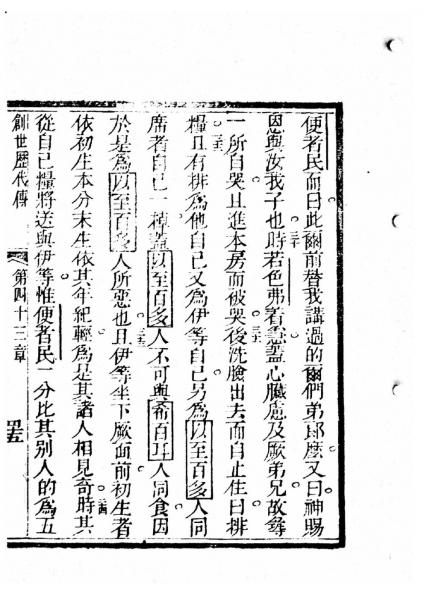 便者民而曰此爾前替我講過的爾們弟郎麼又曰神賜
恩與汝我子也三十時若色弗着急蓋心臟慮及厥弟兄故尋
一所自哭且進本房而彼哭後三一洗臉出去而自止住曰排
糧三二且有排爲他自己又爲伊等自己另爲以至百多人同
席者自己一棹蓋以至百多人不可與希百耳人同食因
於是爲以至百多人所惡也三三且伊等坐下厥面前初生者
依初生本分末生依其年紀輕爲是其諸人相見奇三四時其
從自己糧將送與伊等惟便者民一分比其別人的爲五
創世歷代傳 第四十三章